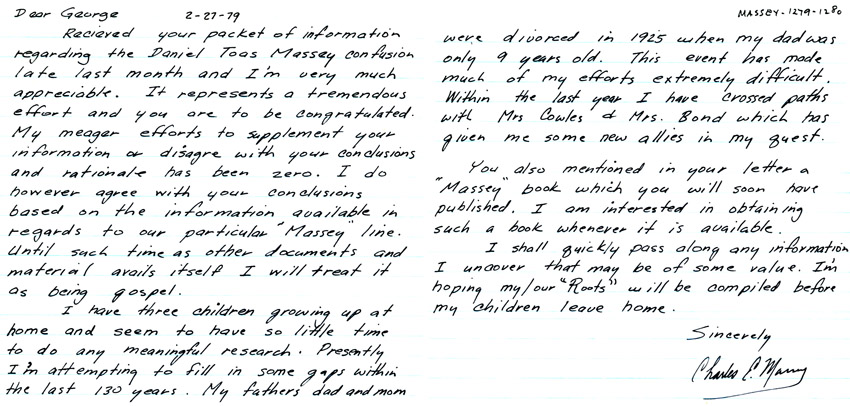 Dear George 2-27-79
Recieved your packet of information
regarding the Daniel Toas Massey confusion
late last month and I'm very much
appreciable. It represents a tremendous
effort and you are to be congratulated.
My meager efforts to supplement your
information or disagre with your conclusions
and rationale has been zero. I do
however agree with your conclusions
based on the information available in
regards to our particular "Massey" line.
Until such time as other documents and
material avails itself I will treat it
as being gospel.
I have three children growing up at
home and seem to have so little time
to do any meaningful research. Presently
I'm attempting to fill in some gaps within
the last 130 years. My fathers dad and mom
MASSEY-1279-1280
were divorced in 1925 when my dad was
only 9 years old. This event has made
much of my efforts extremely difficult.
Within the last year I have crossed paths
with Mrs Cowles & Mrs. Bond which has
given me some new allies in my quest.
You also mentioned in your letter a
"Massey" book which you will soon have
published. I am interested in obtaining
such a book whenever it is available.
I shall quickly pass along any information
I uncover that may be of some value. I'm
hoping my/our "Roots" will be compiled before
my children leave home.
Sincerely
Charles E. Massey